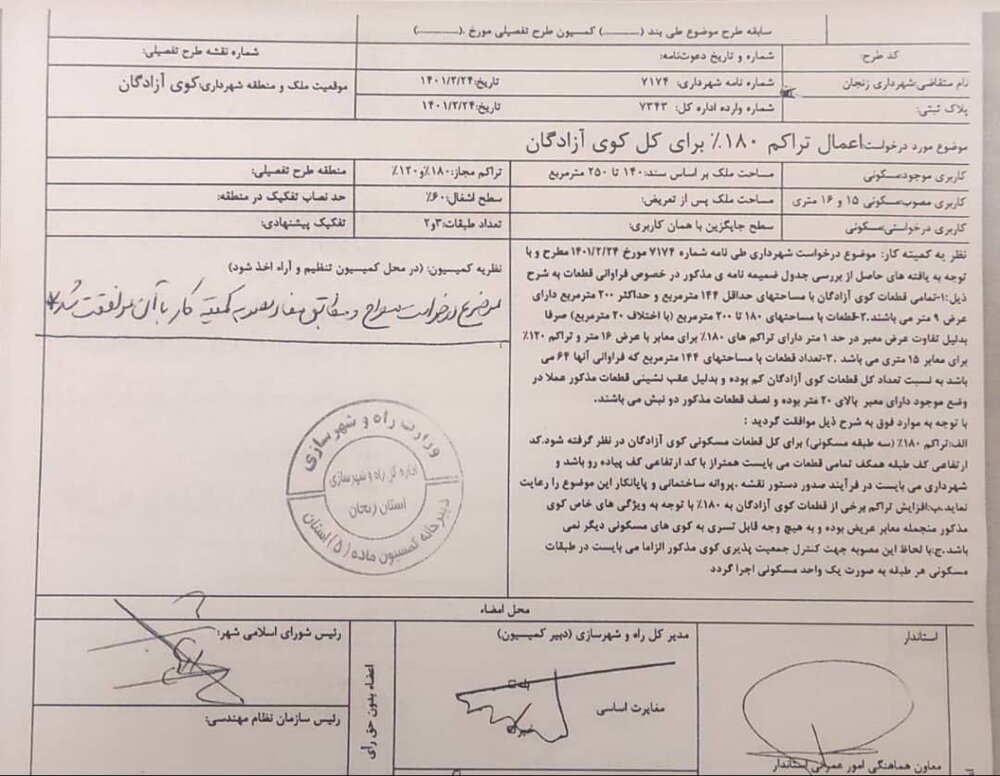 سابقه طرح موضوع طی بند (............) کمیسیون طرح تفصیلی مورخ .(............)
کد طرح: شماره و تاریخ دعوت‌نامه: شماره نقشه طرح تفصیلی:
نام متقاضی:شهرداری زنجان شماره نامه شهرداری: ۷۱۷۴ تاریخ:۱۴۰۱/۲/۲۴ موقعیت ملک و منطقه شهرداری:کوی آزادگان
پلاک ثبتی: شماره وارده اداره کل: ۷۲۴۳ تاریخ:۱۴۰۱/۲/۲۴
موضوع مورد درخواست:اعمال تراکم ۱۸۰٪ برای کل کوی آزادگان
کاربری موجود:مسکونی مساحت ملک بر اساس سند:۱۴۰ تا ۲۵۰ مترمربع تراکم مجاز:۱۸۰٪و۱۲۰٪ منطقه طرح تفصیلی:
کاربری مصوب:مسکونی ۱۵ و ۱۶ متری مساحت ملک پس از تعریض: سطح اشغال:۶۰٪ حد نصاب تفکیک در منطقه:
کاربری درخواستی:مسکونی سطح جایگزین با همان کاربری: تعداد طبقات:۲و۳ تفکیک پیشنهادی:
نظر یه کمیته کار: موضوع درخواست شهرداری طی نامه شماره ۷۱۷۴ مورخ ۱۴۰۱/۲/۲۴ مطرح و با
توجه به یافته های حاصل از بررسی جدول ضمیمه نامه ی مذکور در خصوص فراوانی قطعات به شرح
ذیل:۱-تمامی قطعات کوی آزادگان با مساحتهای حداقل ۱۴۴ مترمربع و حداکثر ۲۰۰ مترمربع دارای
عرض ۹ متر می باشند.۲-قطعات با مساحتهای ۱۸۰ تا ۲۰۰ مترمربع (با اختلاف ۲۰ مترمربع) صرفا
بدلیل تفاوت عرض معبر در حد ۱ متر دارای تراکم های ۱۸۰٪ برای معابر با عرض ۱۶ متر و تراکم ۱۲۰٪
برای معابر ۱۵ متری می باشد .۳-تعداد قطعات با مساحتهای ۱۴۴ مترمربع که فراوانی آنها ۶۴ می
باشد به نسبت تعداد کل قطعات کوی آزادگان کم بوده و بدلیل عقب نشینی قطعات مذکور عملا در
وضع موجود دارای معبر بالای ۲۰ متر بوده و نصف قطعات مذکور دو نبش می باشند.
با توجه به موارد فوق به شرح ذیل موافقت گردید :
الف:تراکم ۱۸۰٪ (سه طبقه مسکونی) برای کل قطعات مسکونی کوی آزادگان در نظر گرفته شود.کد
ارتفاعی کف طبقه همکف تمامی قطعات می بایست همتراز با کد ارتفاعی کف پیاده رو باشد و
شهرداری می بایست در فرآیند صدور دستور نقشه ،پروانه ساختمانی و پایانکار این موضوع را رعایت
نماید.ب:افزایش تراکم برخی از قطعات کوی آزادگان به ۱۸۰٪ با توجه به ویژگی های خاص کوی
مذکور منجمله معابر عریض بوده و به هیچ وجه قابل تسری به کوی های مسکونی دیگر نمی
باشد.ج:با لحاظ این مصوبه جهت کنترل جمعیت پذیری کوی مذکور الزاما می بایست در طبقات
مسکونی هر طبقه به صورت یک واحد مسکونی اجرا گردد
نظریه کمیسیون: (در محل کمیسیون تنظیم و آراء اخذ شود)
موضوع درخواست مطرح و مطابق مفاد مصوبه کمیته کار با آن موافقت شد
وزارت راه و شهرسازی
اداره کل راه و شهرسازی
استان زنجان
دبیرخانه کمسیون ماده (۵) استان
محل امضاء
استاندار
معاون هماهنگی امور عمرانی استاندار
مدیر کل راه و شهرسازی (دبیر کمیسیون)
مغایرت اساسی
اعضاء بدون حق رأی
رئیس شورای اسلامی شهر:
رئیس سازمان نظام مهندسی: